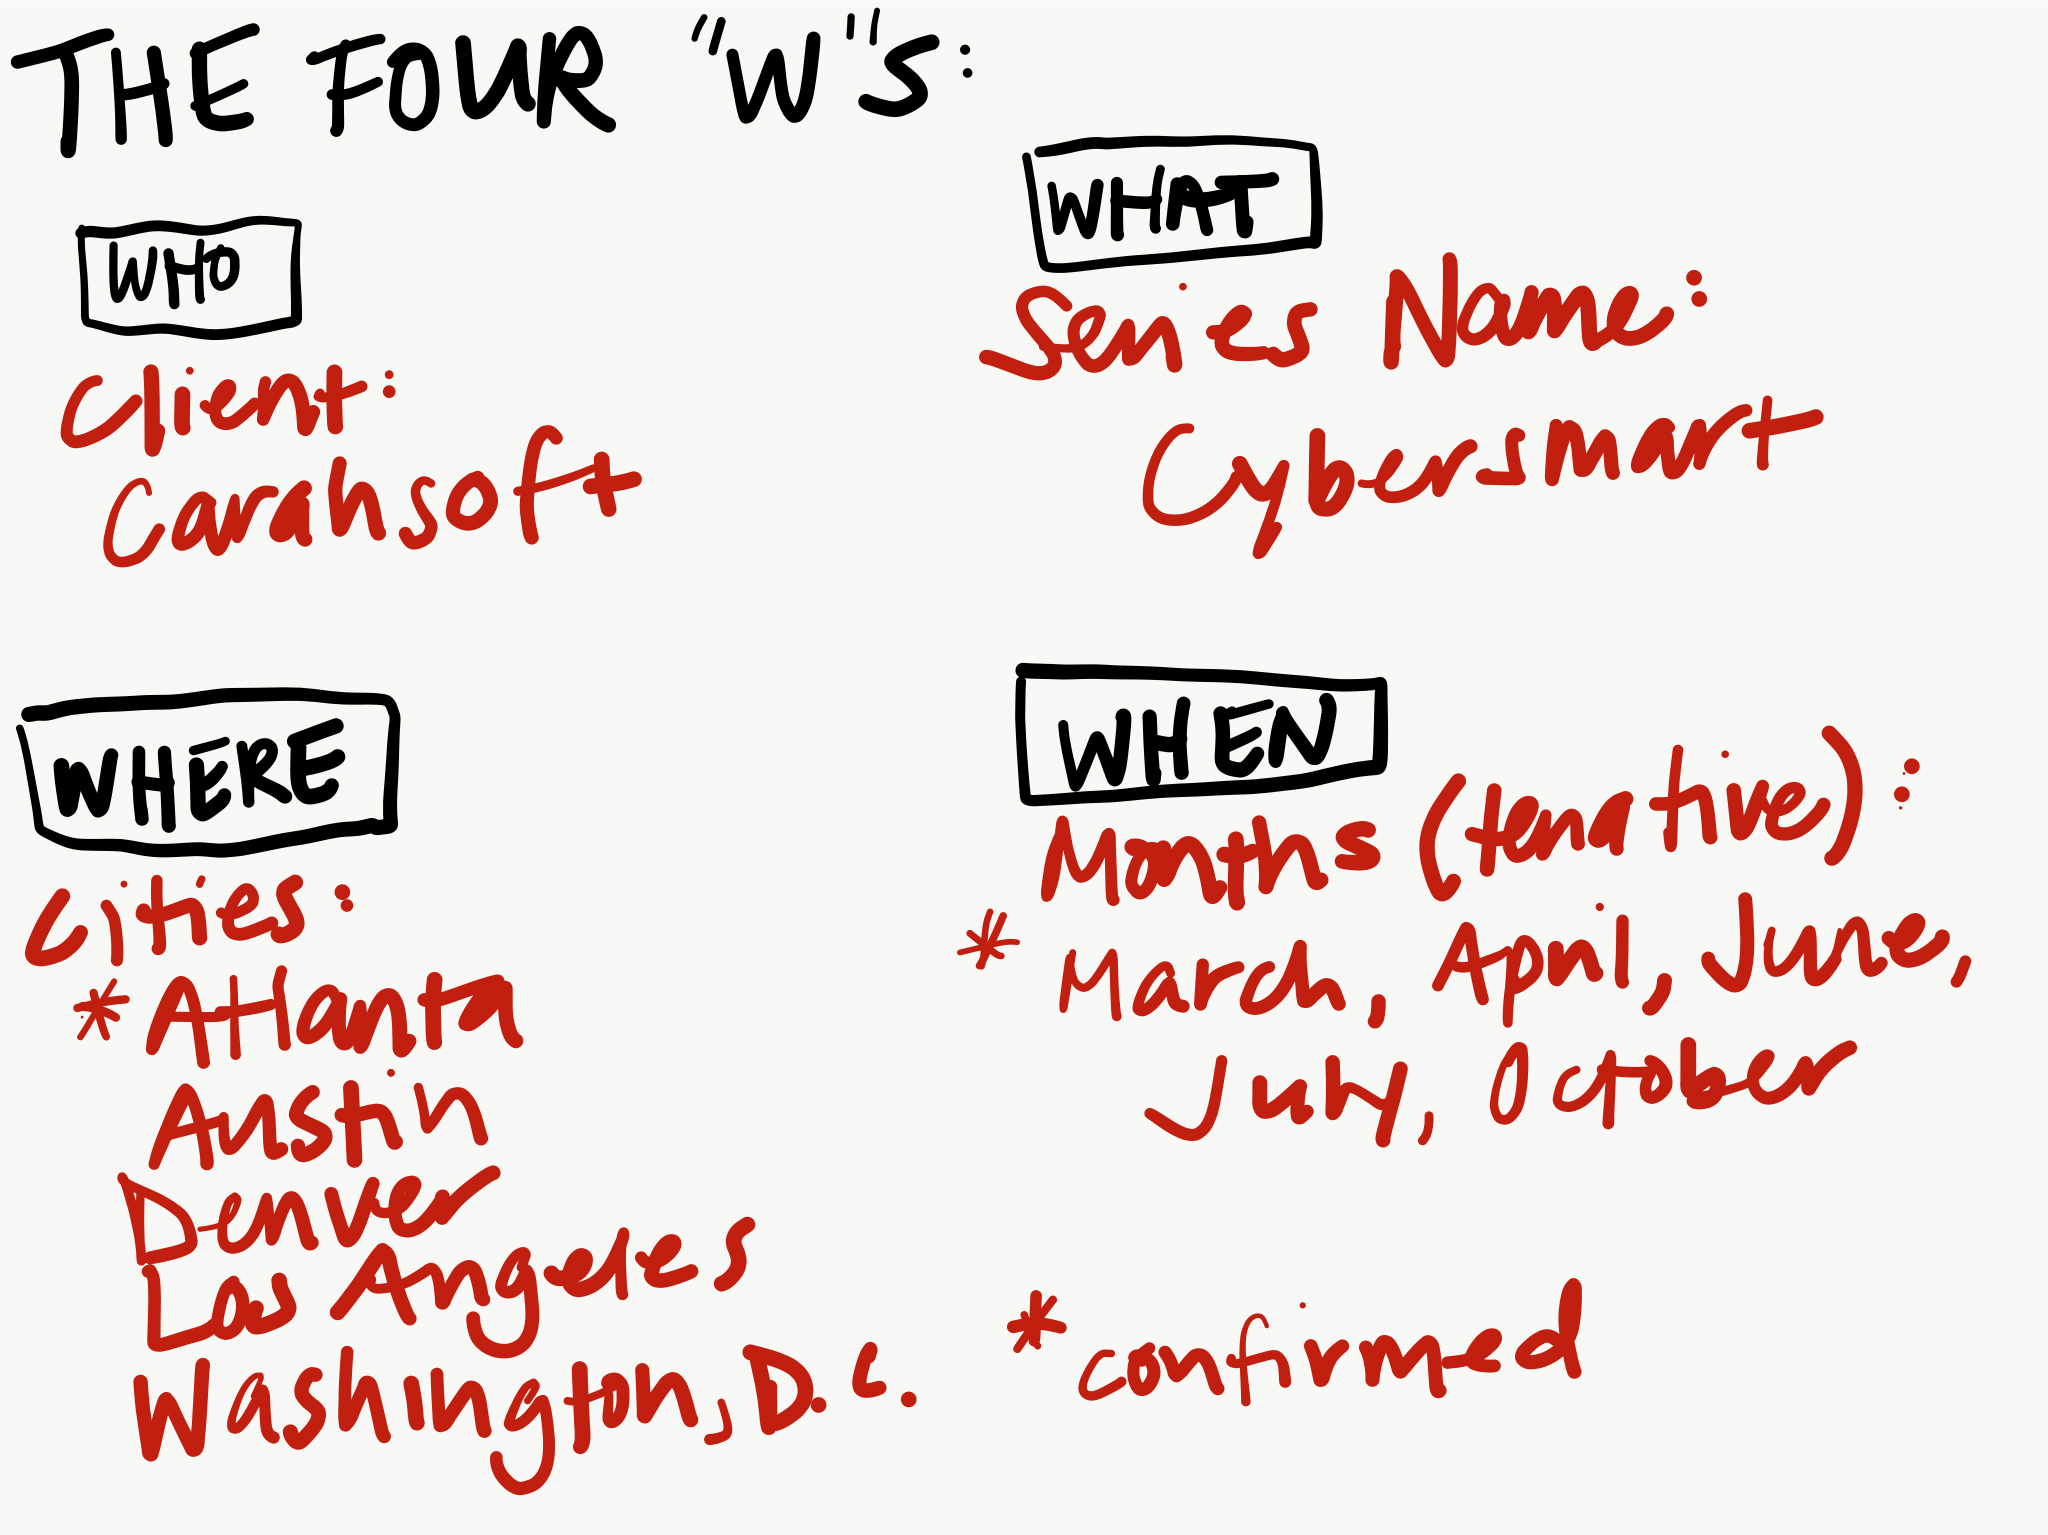 THE FOUR "W"S:
WHO
Client:
Carahsoft
WHAT
Series Name:
Cybersmart
WHERE
Cities:
* Atlanta
Austin
Denver
Los Angeles
Washington, D.C.
WHEN
Months (tenative):
* March, April, June,
July, October
* confirmed